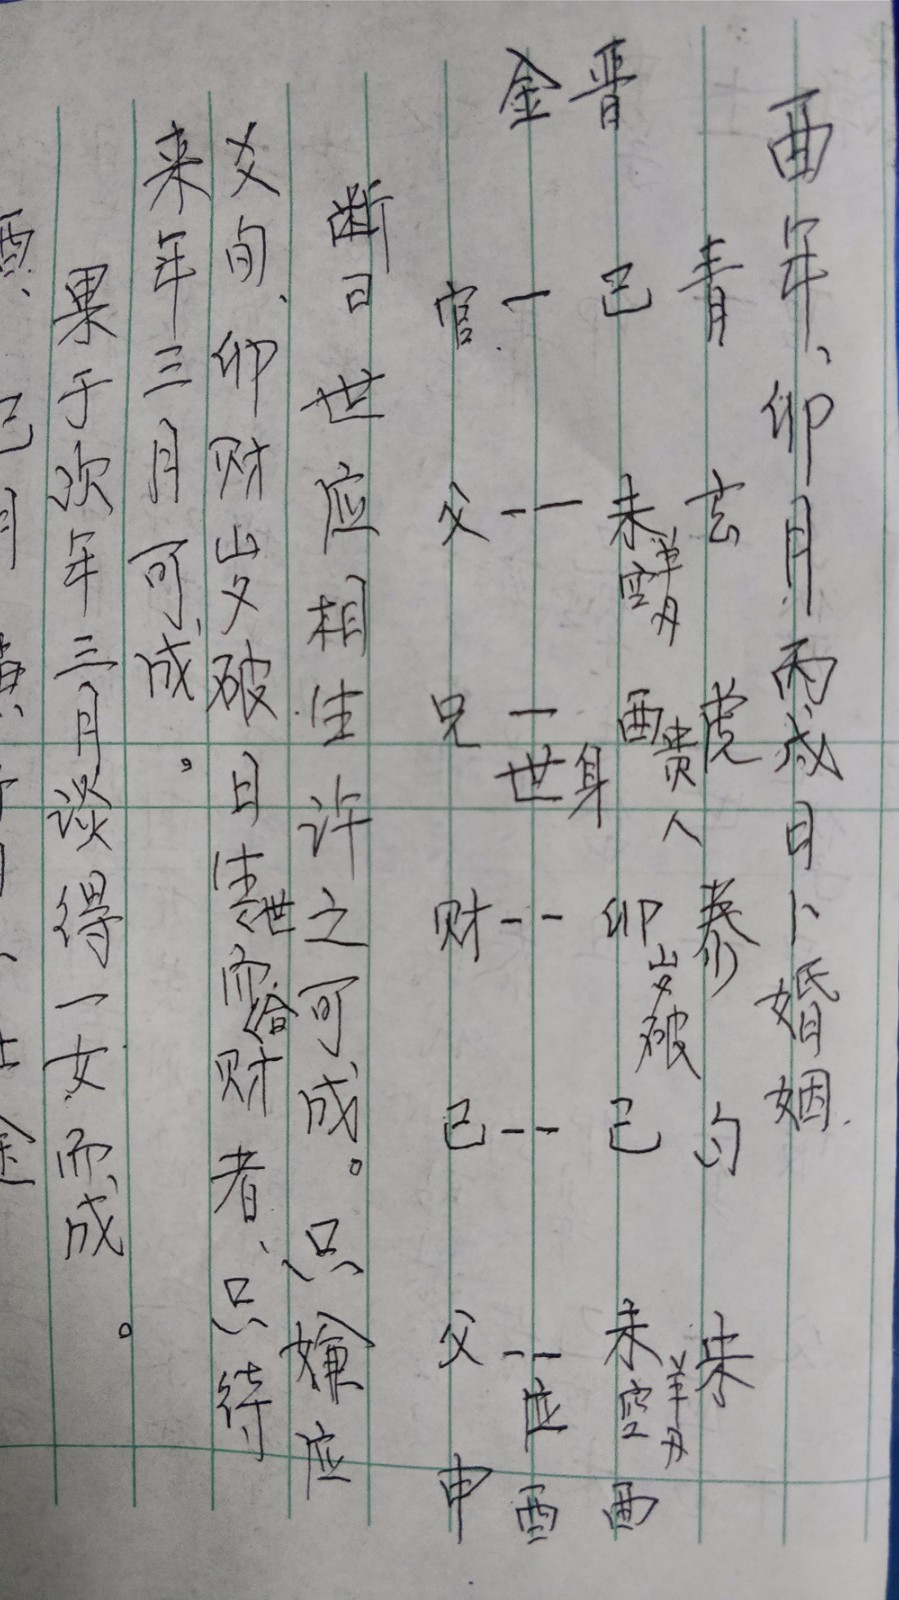 酉年、卯月丙戌日卜婚姻.
青玄虎勾朱
巳未羊刃空酉贵人卯岁破巳未羊刃空酉
晋身
金一 -- 一世 -- -- --应酉
官父兄财巳父申
断曰世应相生许之可成。只嫌应
爻旬、卯财岁破日生世而合财者、只待
来年三月可成。
果于次年三月谈得一女而成。